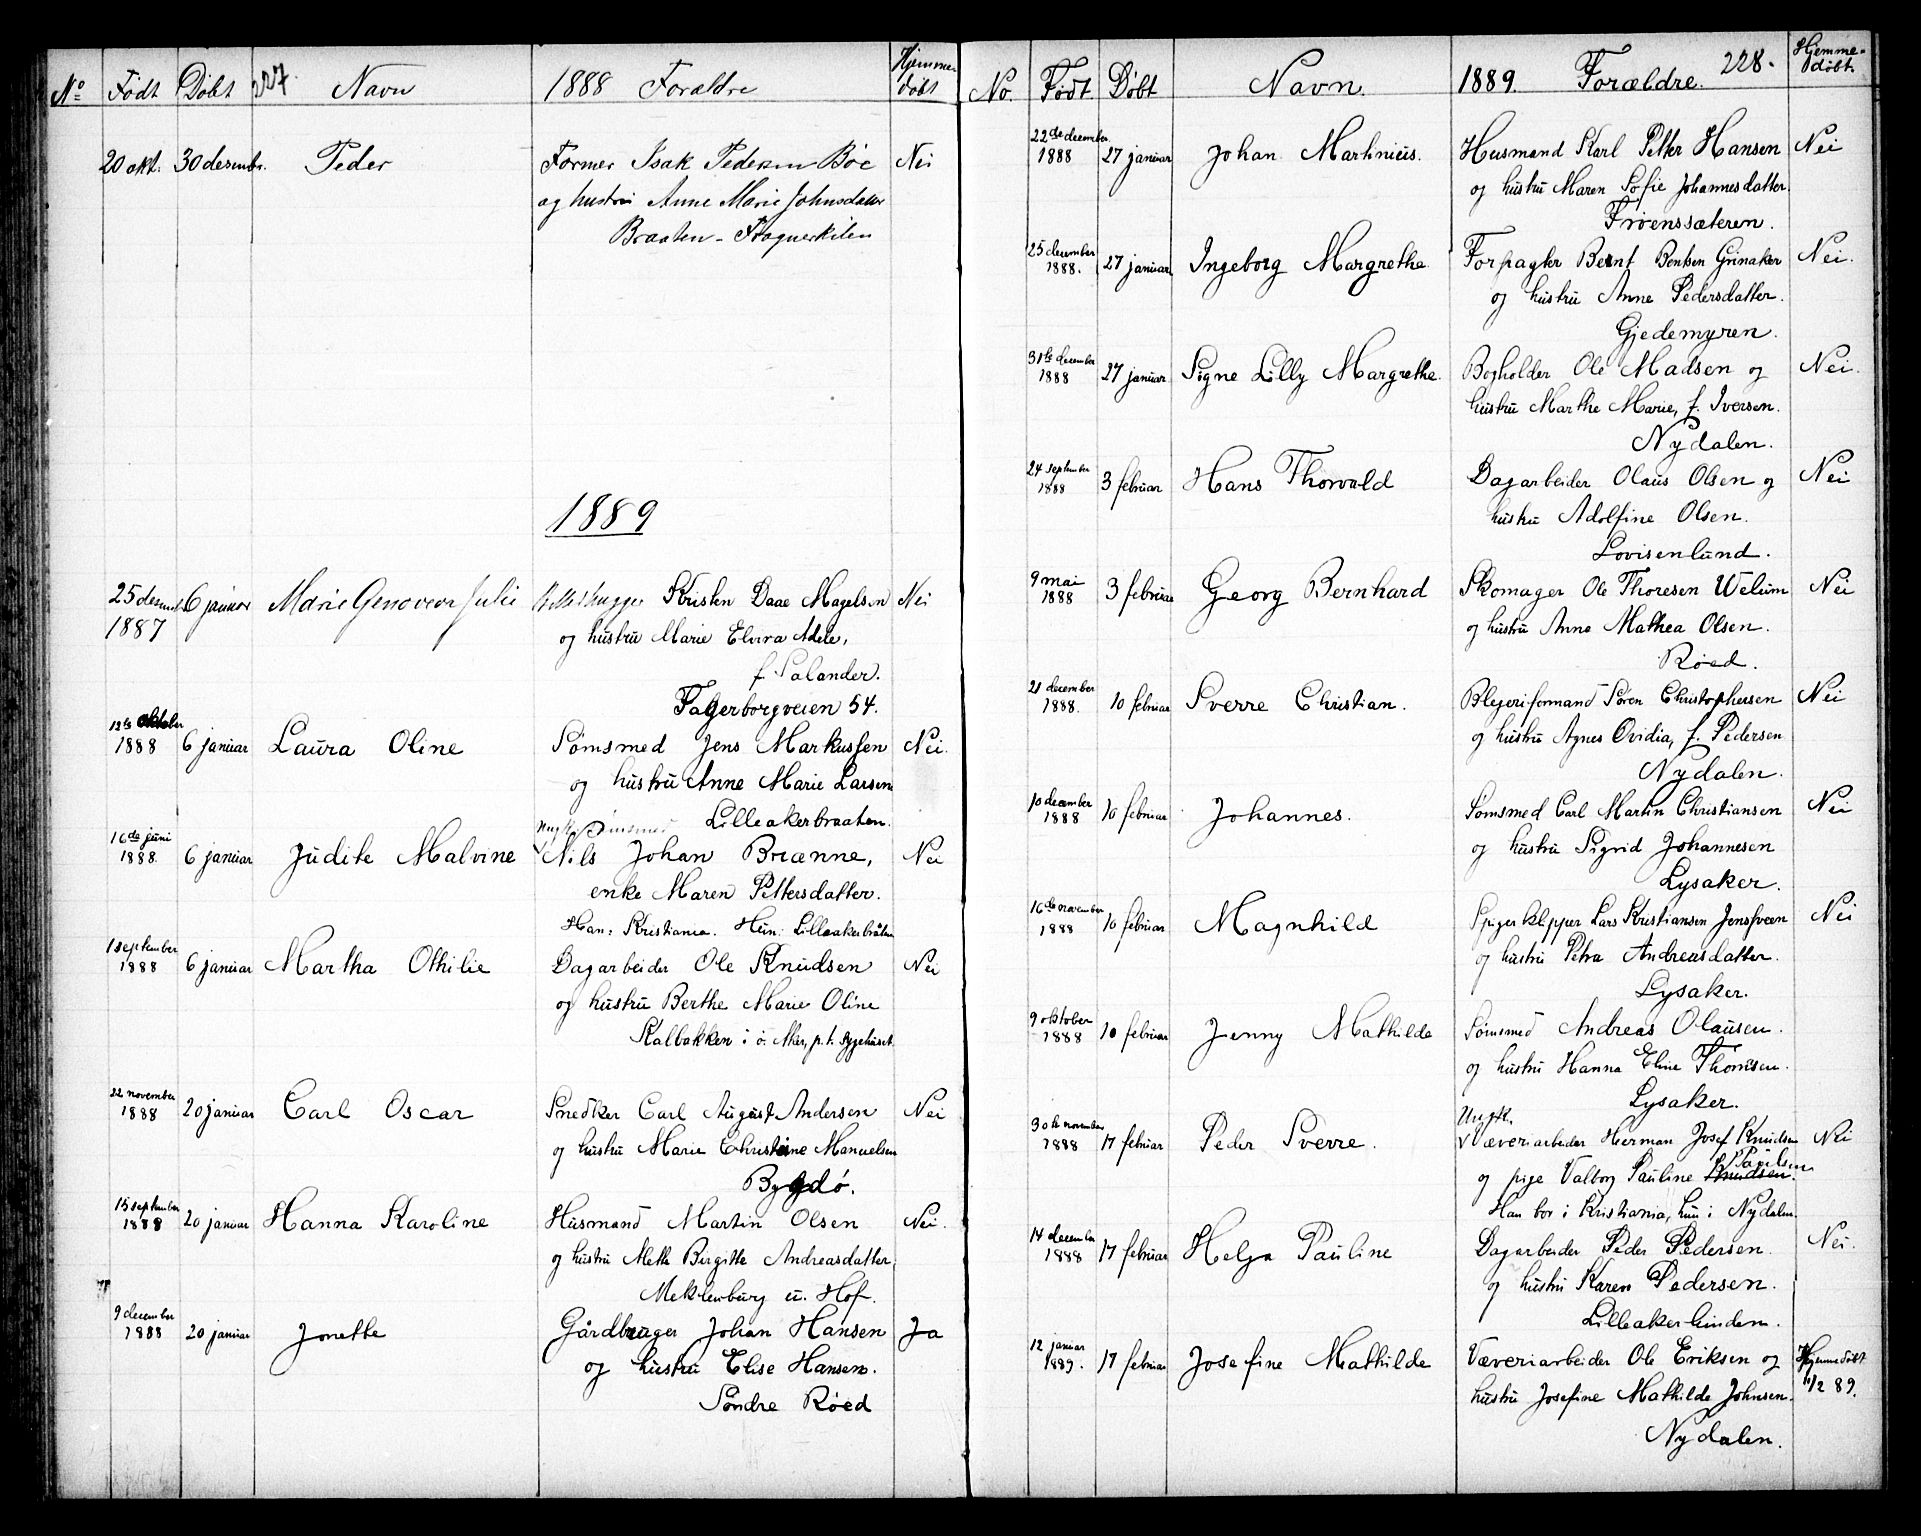 No Født Døbt 227. Navn 1888 Forældre Hjemmedøbt
20 okt. 30 desembr. Peder Former Isak Pedersen Bøe Nei
og hustru Anne Marie Johnsdatter
Braaten - Frognerkilen
1889
25 desembr 6 januar Marie Genoveva Julie Billedhugger Kristen Daae Magelsen Nei
1887 og hustru Marie Elvira Adele,
f. Salander.
Fagerborgveien 54.
12te oktober
1888 6 januar Laura Oline Sømsmed Jens Markussen Nei.
og hustru Anne Marie Larsen
Lilleakerbraaten.
16de juni Ungk. Sømsmed
1888. 6 januar Judite Malvine Nils Johan Brænne, Nei
enke Maren Pettersdatter.
Han: Kristiania. Hun: Lilleakerbråten
1 september
1888 6 januar Martha Othilie Dagarbeider Ole Knudsen Nei
og hustru Berthe Marie Oline
Kalbakken i ø. Aker, p.t. sygehuset.
22 november
1888 20 januar Carl Oscar Snedker Carl August Andersen Nei
og hustru Marie Christine Manuelsen
Bygdø.
15 september
1888 20 januar Hanna Karoline Husmand Martin Olsen Nei.
og hustru Mette Birgitte Andreasdatter
Meklenburg u. Hof.
9 december
1888 20 januar Jonette Gårdbruger Johan Hansen Ja
og hustru Elise Hansen.
Søndre Røed
No. Født Døbt Navn. 1889. Forældre. 228. Hjemmedøbt.
22de december
1888 27 januar Johan Martinius. Husmand Karl Petter Hansen Nei
og hustru Maren Sofie Johannesdatter.
Frøenssæteren.
25 december
1888. 27 januar Ingeborg Margrethe Forpagter Bernt Bentsen Grinaker Nei.
og hustru Anne Pedersdatter.
Gjedemyren.
31te december
1888 27 januar Signe Lilly Margrethe. Bogholder Ole Madsen og Nei.
hustru Marthe Marie, f. Iversen.
Nydalen.
24 september
1888 3 februar Hans Thorvald Dagarbeider Olaus Olsen og Nei
hustru Adolfine Olsen.
Lovisenlund.
9 mai
1888 3 februar Georg Bernhard Skomager Ole Thoresen Welum Nei
og hustru Anne Mathea Olsen.
Røed.
21 december
1888. 10 februar Sverre Christian. Blegeriformand Søren Christophersen Nei
og hustru Agnes Ovidia, f. Pedersen
Nydalen.
10 december
1888 10 februar Johannes. Sømsmed Carl Martin Christiansen Nei
og hustru Sigrid Johannesen
Lysaker.
16de november
1888 10 februar Magnhild Spigerklipper Lars Kristiansen Jensveen Nei
og hustru Petra Andreasdatter.
Lysaker.
9 oktober
1888 10 februar Jenny Mathilde Sømsmed Andreas Olausen.
og hustru Hanna Eline Thomsen.
Lysaker.
30te november Ungk.
1888 17 februar Peder Sverre. Væveriarbeider Herman Josef Knudsen Nei
og pige Valborg Pauline Knudsen. Paulsen
Han bor i Kristiania, hun i Nydalen.
14 december
1888 17 februar Helga Pauline Dagarbeider Peder Pedersen. Nei.
og hustru Karen Pedersen.
Lilleakerlinden.
12 januar
1889. 17 februar Josefine Mathilde Væveriarbeider Ole Eriksen og Hjemmedøbt
hustru Josefine Mathilde Johnsen. 11/2 89.
Nydalen.